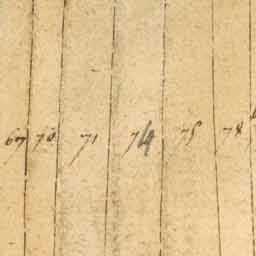 67 70 71 74 75 78